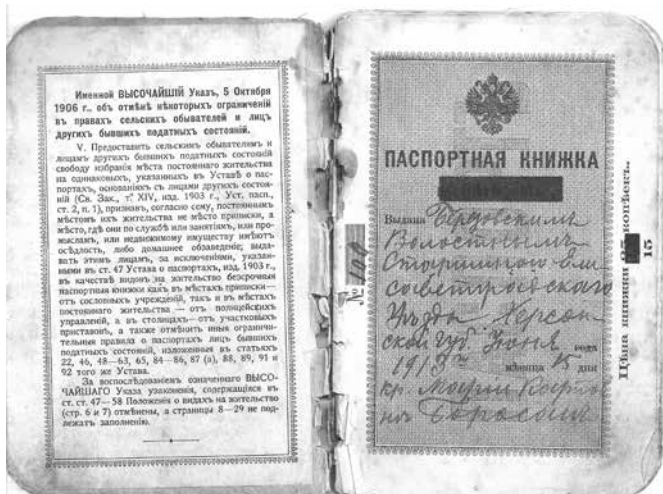 Именной ВЫСОЧАЙШІЙ Указъ, 5 Октября
1906 г., объ отмѣнѣ нѣкоторыхъ ограниченій
въ правахъ сельскихъ обывателей и лицъ
другихъ бывшихъ податныхъ состояній.
V. Предоставить сельскимъ обывателямъ и
лицамъ другихъ бывшихъ податныхъ состояній
свободу избранія мѣста постояннаго жительства
на одинаковыхъ, указанныхъ въ Уставѣ о пас-
портахъ, основаніяхъ съ лицами другихъ состоя-
ній (Св. Зак., т. XIV, изд. 1903 г., Уст. пасп.,
ст. 2, п. 1), признавъ, согласно сему, постояннымъ
мѣстомъ ихъ жительства не мѣсто приписки, а
мѣсто, гдѣ они по службѣ или занятіямъ, или про-
мысламъ, или недвижимому имуществу имѣютъ
осѣдлость, либо домашнее обзаведеніе; выда-
вать этимъ лицамъ, за исключеніями, указан-
ными въ ст. 47 Устава о паспортахъ, изд. 1903 г.,
въ качествѣ видовъ на жительство безсрочныя
паспортныя книжки какъ въ мѣстахъ приписки—
отъ сословныхъ учрежденій, такъ и въ мѣстахъ
постояннаго жительства — отъ полицейскихъ
управленій, а въ столицахъ—отъ участковыхъ
приставовъ, а также отмѣнить иныя ограничи-
тельныя правила о паспортахъ лицъ бывшихъ
податныхъ состояній, изложенныя въ статьяхъ
22, 46, 48—63, 65, 84—86, 87 (а), 88, 89, 91 и
92 того же Устава.
За воспослѣдованіемъ означеннаго ВЫСО-
ЧАЙШАГО Указа узаконенія, содержащіяся въ
ст. ст. 47—58 Положенія о видахъ на жительство
(стр. 6 и 7) отмѣнены, а страницы 8—29 не под-
лежатъ заполненію.
№
ПАСПОРТНАЯ КНИЖКА
Выдана
Волостнымъ
Старшиною Ели
саветградскаго
Уѣзда Херсон
ской губ. Іюня года
1913 г. мѣсяца 15 дня
кр. Маріи
Цѣна книжки 15 копѣекъ.